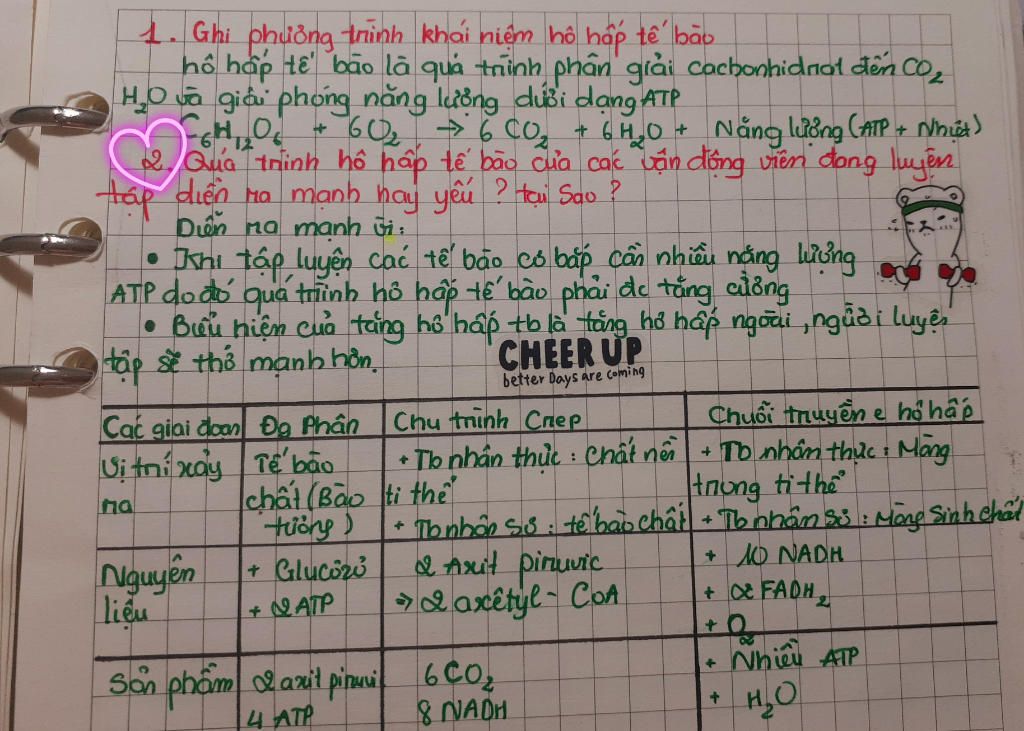 1. Ghi phương trình khái niệm hô hấp tế bào
hô hấp tế bào là quá trình phân giải cacbonhidrat đến CO2
H2O và giải phóng năng lượng dưới dạng ATP
C6H12O6 + 6O2 → 6 CO2 + 6H2O + Năng lượng (ATP + Nhiệt)
2. Quá trình hô hấp tế bào của các vận động viên đang luyện
tập diễn ra mạnh hay yếu ? tại sao ?
Diễn ra mạnh vì:
• Khi tập luyện các tế bào cơ bắp cần nhiều năng lượng
ATP do đó quá trình hô hấp tế bào phải đc tăng cường
• Biểu hiện của tăng hô hấp tb là tăng hô hấp ngoài, người luyện
tập sẽ thở mạnh hơn.
CHEER UP
better Days are coming
Các giai đoạn | Đg Phân | Chu trình Crep | Chuỗi truyền e hô hấp
Vị trí xảy ra | Tế bào chất (Bào tương) | + Tb nhân thực : Chất nền ti thể + Tb nhân sơ : tế bào chất | + Tb nhân thực : Màng trong ti thể + Tb nhân sơ : Màng sinh chất
Nguyên liệu | + Glucôzơ + 2 ATP | 2 Axit piruvic → 2 axêtyl - CoA | + 10 NADH + 2 FADH2 + O2
Sản phẩm | 2 axit piruvi 4 ATP | 6 CO2 8 NADH | + Nhiều ATP + H2O